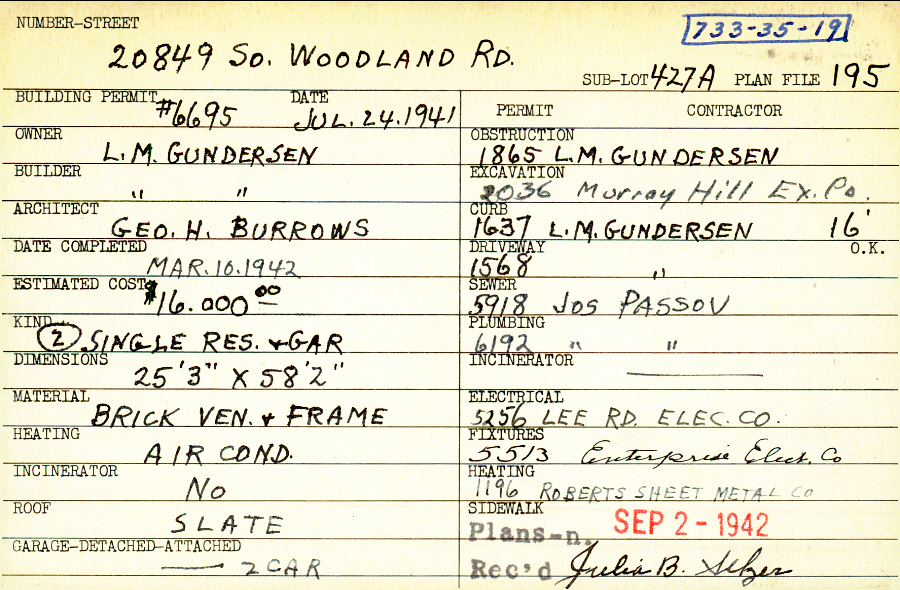 NUMBER-STREET
733-35-19
20849 So. WOODLAND RD.
SUB-LOT 427A PLAN FILE 195
BUILDING PERMIT #6695 DATE JUL. 24. 1941
OWNER L.M. GUNDERSEN
BUILDER " "
ARCHITECT GEO. H. BURROWS
DATE COMPLETED MAR. 10. 1942
ESTIMATED COST $16.000 00
KIND (2) SINGLE RES. & GAR
DIMENSIONS 25'3" X 58'2"
MATERIAL BRICK VEN. & FRAME
HEATING AIR COND.
INCINERATOR NO
ROOF SLATE
GARAGE-DETACHED-ATTACHED 2 CAR
PERMIT CONTRACTOR
OBSTRUCTION 1865 L.M. GUNDERSEN
EXCAVATION 2036 Murray Hill Ex. Co.
CURB 1637 L.M. GUNDERSEN 16'
DRIVEWAY 1568 " O.K.
SEWER 5918 JOS PASSOV
PLUMBING 6192 " "
INCINERATOR
ELECTRICAL 5256 LEE RD. ELEC. CO.
FIXTURES 5513 Enterprise Elect. Co
HEATING 1196 ROBERTS SHEET METAL CO
SIDEWALK
Plans-n. SEP 2-1942
Rec'd Julia B.